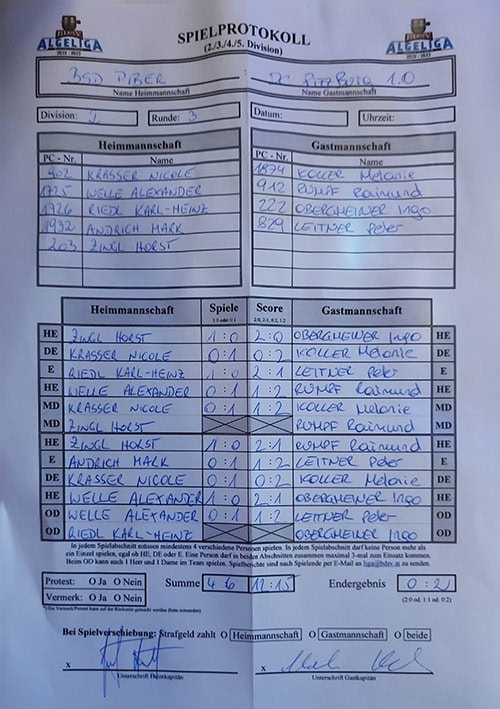 ALGELIGA
SPIELPROTOKOLL
(2./3./4./5. Division)
ALGELIGA
BSD PIBER : DC PITZBUTG 1.0
Name Heimmannschaft Name Gastmannschaft
Division: 2 Runde: 3 Datum: Uhrzeit:
Heimmannschaft Gastmannschaft
PC - Nr. Name PC - Nr. Name
902 KRASSER NICOLE 1874 KOLLER Melanie
1725 WELLE ALEXANDER 912 RUMPF Raimund
1726 RIEDL KARL-HEINZ 222 OBERGMEINER Ingo
1932 ANDRICH MARK 829 LEITNER Peter
203 ZINGL HORST
Heimmannschaft Spiele Score Gastmannschaft
1:0 oder 0:1 2:0, 2:1, 0:2, 1:2
HE ZINGL HORST 1:0 2:0 OBERGMEINER Ingo HE
DE KRASSER NICOLE 0:1 0:2 KOLLER Melanie DE
E RIEDL KARL-HEINZ 1:0 2:1 LEITNER Peter E
HE WELLE ALEXANDER 0:1 1:2 RUMPF Raimund HE
MD KRASSER NICOLE 0:1 1:2 KOLLER Melanie MD
MD ZINGL HORST RUMPF Raimund MD
HE ZINGL HORST 1:0 2:1 RUMPF Raimund HE
E ANDRICH MARK 0:1 1:2 LEITNER Peter E
DE KRASSER NICOLE 0:1 0:2 KOLLER Melanie DE
HE WELLE ALEXANDER 1:0 2:1 OBERGMEINER Ingo HE
OD WELLE ALEXANDER 0:1 1:2 LEITNER Peter OD
OD RIEDL KARL-HEINZ OBERGMEINER Ingo OD
In jedem Spielabschnitt müssen mindestens 4 verschiedene Personen spielen. In jedem Spielabschnitt darf keine Person mehr als
ein Einzel spielen, egal ob HE, DE oder E. Eine Person darf in beiden Abschnitten zusammen maximal 3-mal zum Einsatz kommen.
Heim OD kann auch 1 Herr und 1 Dame im Team spielen. Spielberichte sind nach Spielende per E-Mail an liga@bdsv.at zu senden.
Protest: O Ja O Nein Summe 4:6 11:15 Endergebnis 0:2
Vermerk: O Ja O Nein (2:0 od. 1:1 od. 0:2)
Bei Spielverschiebung: Strafgeld zahlt O Heimmannschaft O Gastmannschaft O beide
x x
Unterschrift Heimkapitän Unterschrift Gastkapitän